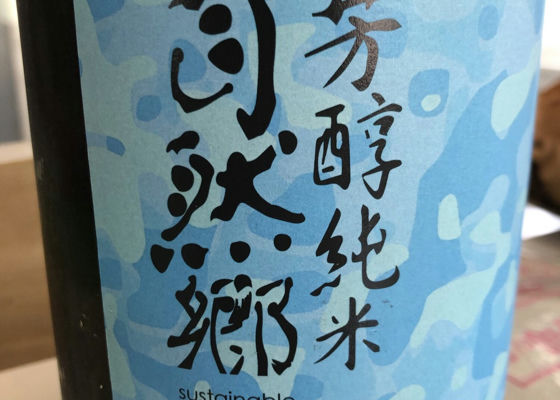 芳醇純米
自然郷
sustainable